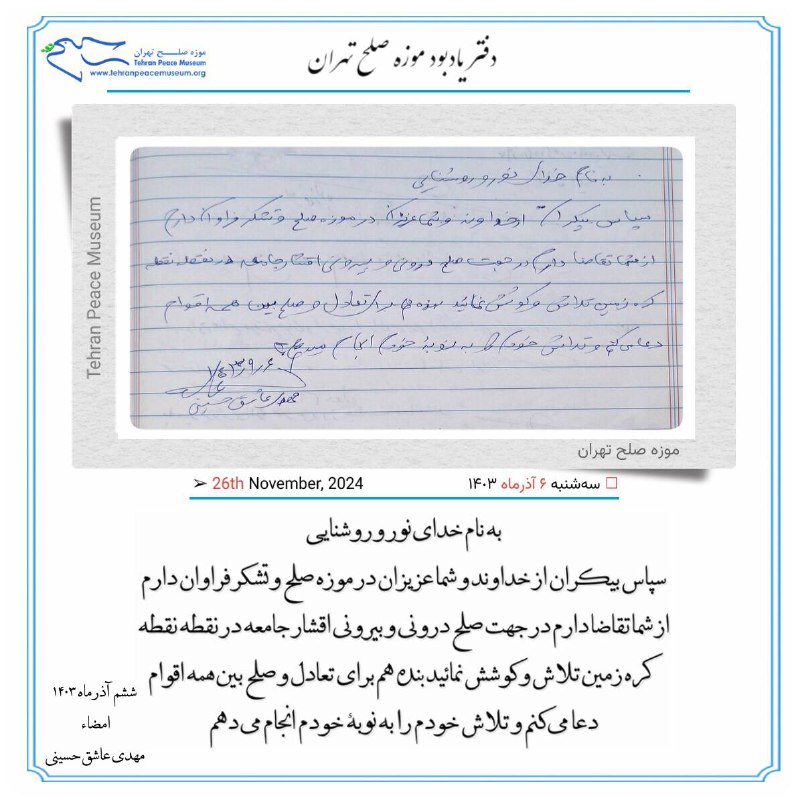 موزه صلح تهران
Tehran Peace Museum
www.tehranpeacemuseum.org
دفتر یادبود موزه صلح تهران
Tehran Peace Museum
به نام خدای نور و روشنایی
سپاس بیکران از خداوند و شما عزیزان در موزه صلح و تشکر فراوان دارم
از شما تقاضا دارم در جهت صلح درونی و بیرونی اقشار جامعه در نقطه نقطه
کره زمین تلاش و کوشش نمائید بنده هم برای تعادل و صلح بین همه اقوام
دعا می‌کنم و تلاش خودم را به نوبهٔ خودم انجام می‌دهم
۱۴۰۳/۹/۶
مهدی عاشق حسینی
موزه صلح تهران
سه‌شنبه ۶ آذرماه ۱۴۰۳
26th November, 2024
به نام خدای نور و روشنایی
سپاس بیکران از خداوند و شما عزیزان در موزه صلح و تشکر فراوان دارم
از شما تقاضا دارم در جهت صلح درونی و بیرونی اقشار جامعه در نقطه نقطه
کره زمین تلاش و کوشش نمائید بنده هم برای تعادل و صلح بین همه اقوام
دعا می‌کنم و تلاش خودم را به نوبهٔ خودم انجام می‌دهم
ششم آذرماه ۱۴۰۳
امضاء
مهدی عاشق حسینی